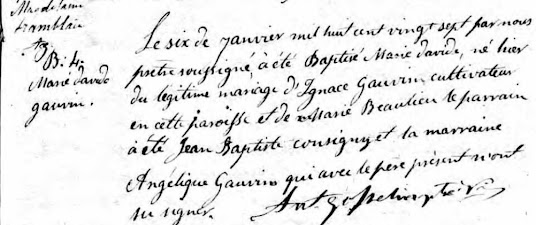 Magdelaine
tramblai
B: 4.
Marie davide
gauvin.
Le six de janvier mil huit cent vingt sept par nous
prêtre soussigné, a été Baptisé Marie davide, né hier
du legitime mariage d'Ignace Gauvin cultivateur
en cette paroisse et de Marie Beaulieu le parrain
a été Jean Baptiste consigny et la marraine
Angélique Gauvin qui avec le pere présent n'ont
su signer.